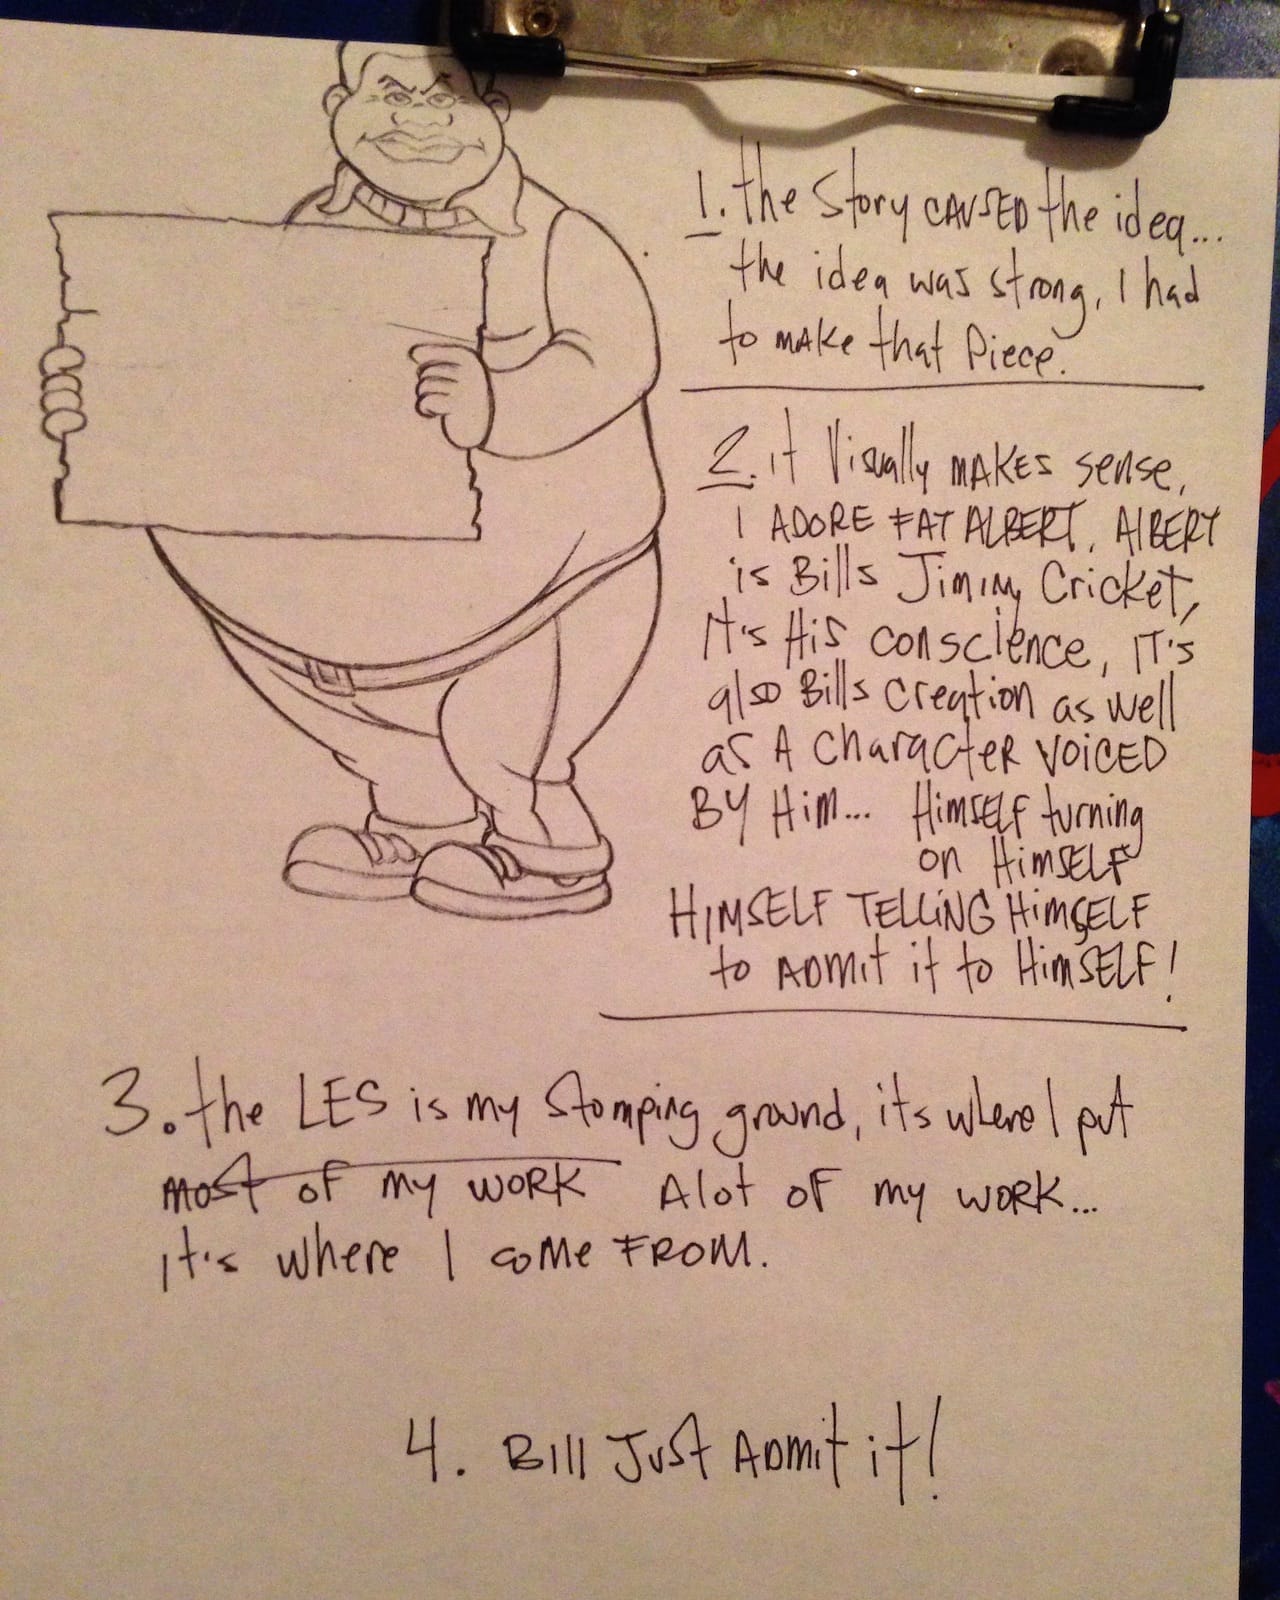 1. the Story CAUSED the idea...
the idea was strong, I had
to MAKE that Piece.
2. it Visually MAKES sense,
I ADORE FAT ALBERT. AlBERT
is Bills Jiminy Cricket,
It's His conscience, IT'S
also Bills Creation as well
as A CharacTER VOICED
BY HiM... HiMSELF turning
on HiMSELF
HiMSELF TELLiNG HiMSELF
to ADMit it to HiMSELF!
3. the LES is my Stomping ground, its where I put
most of my WORK Alot OF my WORK...
it's where I come FROM.
4. Bill Just ADMit it!